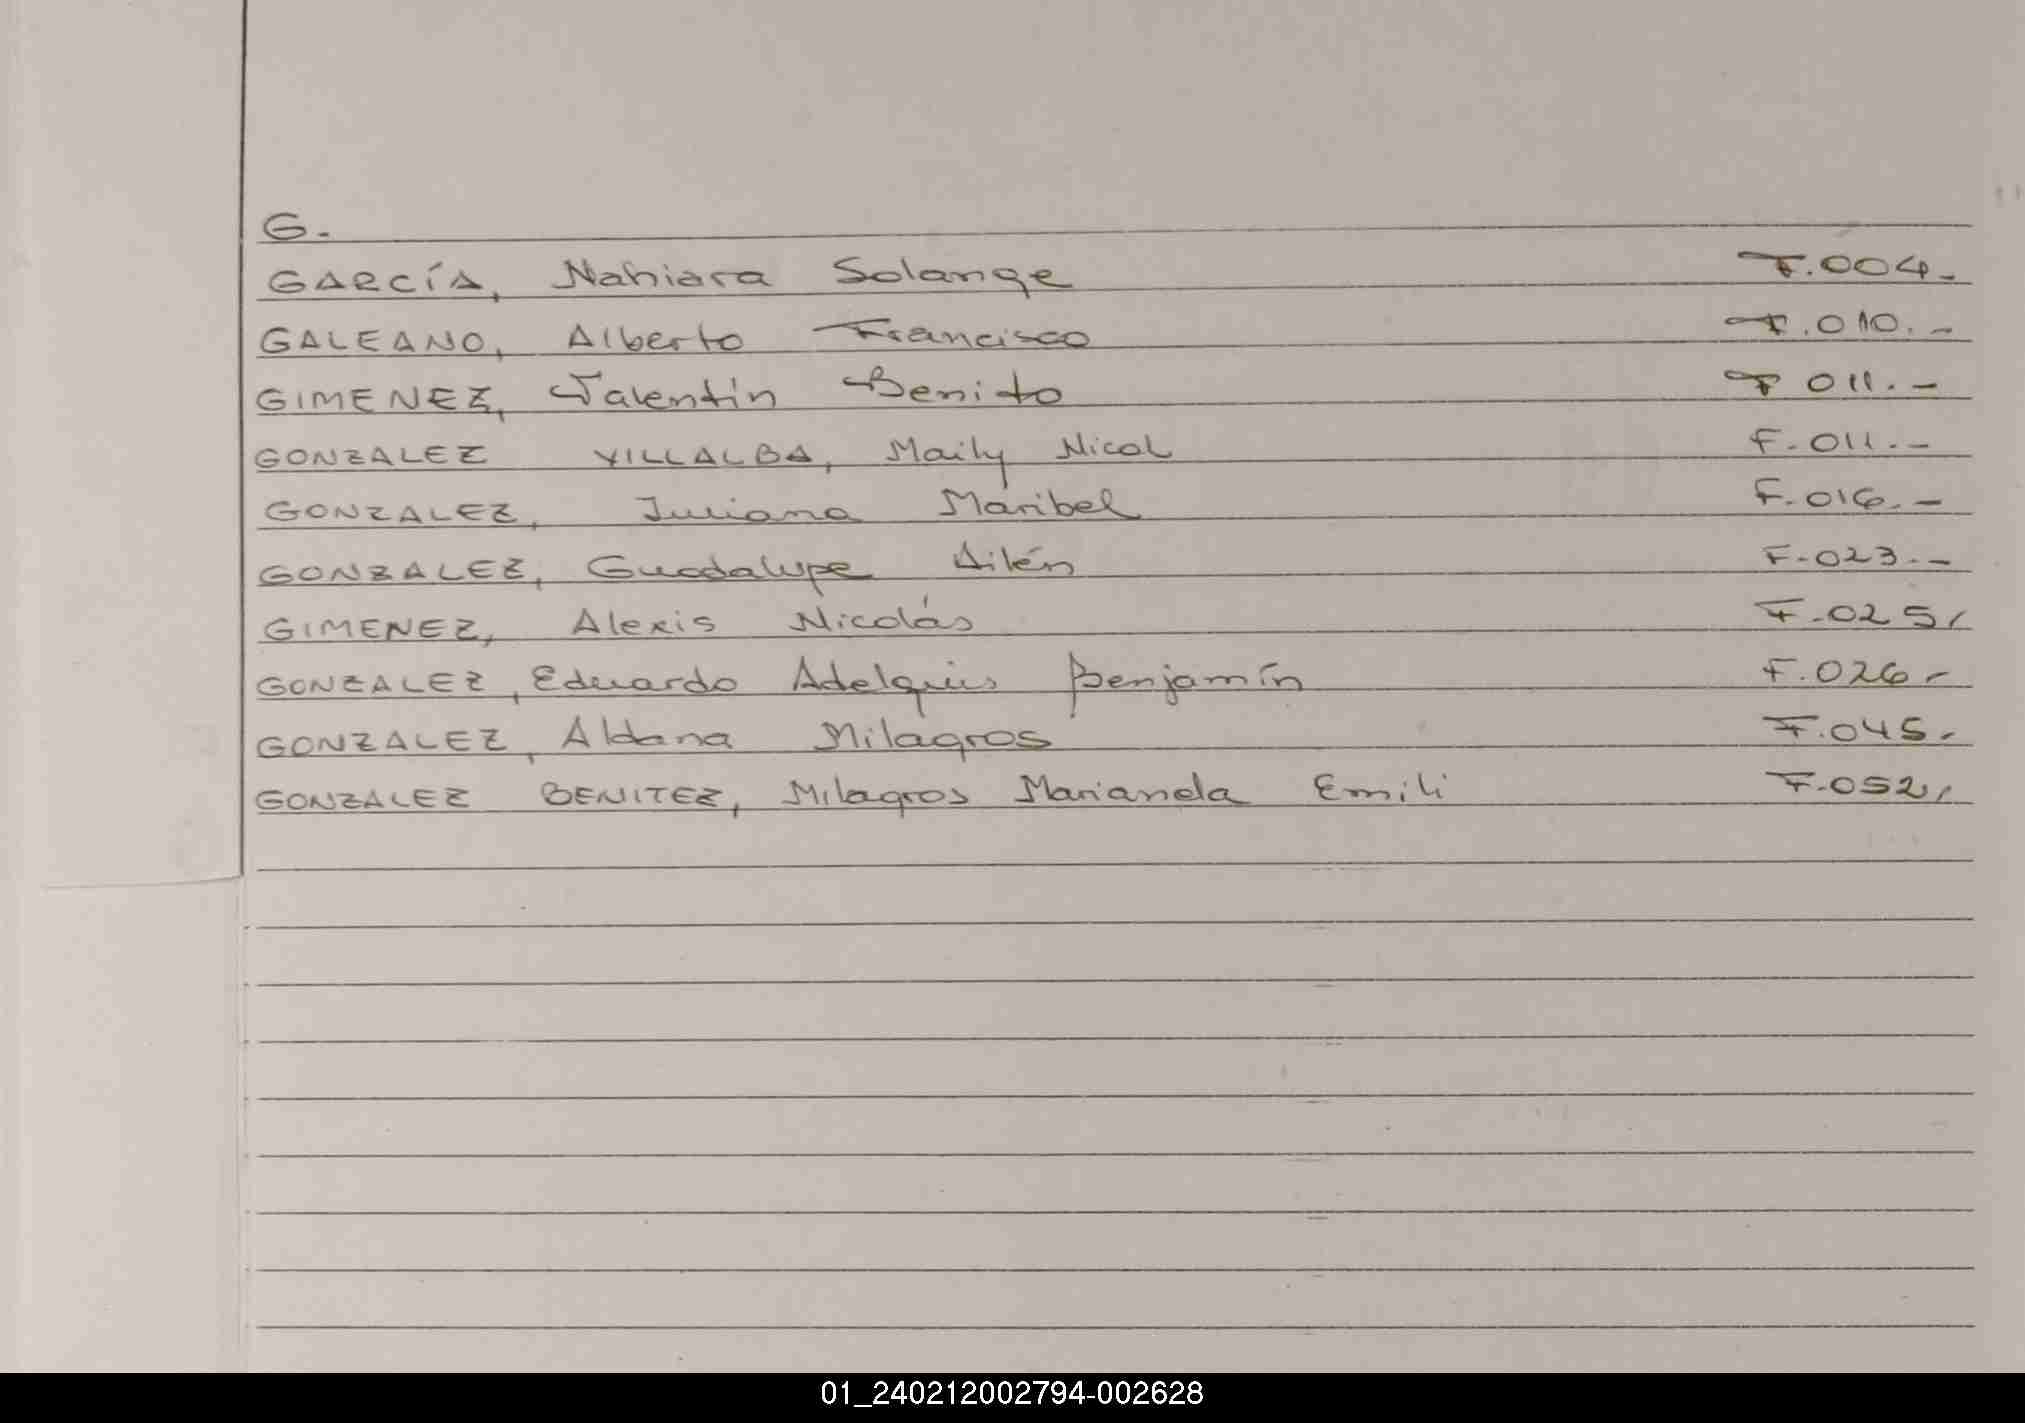 G.-
GARCÍA, Nahiara Solange F.004.-
GALEANO, Alberto Francisco F.010.-
GIMENEZ, Valentín Benito F 011.-
GONZALEZ VILLALBA, Maily Nicol F.011.-
GONZALEZ, Juliana Maribel F.016.-
GONZALEZ, Guadalupe Ailén F.023.-
GIMENEZ, Alexis Nicolás F.025.-
GONZALEZ, Eduardo Adelquis Benjamín F.026.-
GONZALEZ, Aldana Milagros F.045.-
GONZALEZ BENITEZ, Milagros Marianela Emili F.052.-
01_240212002794-002628